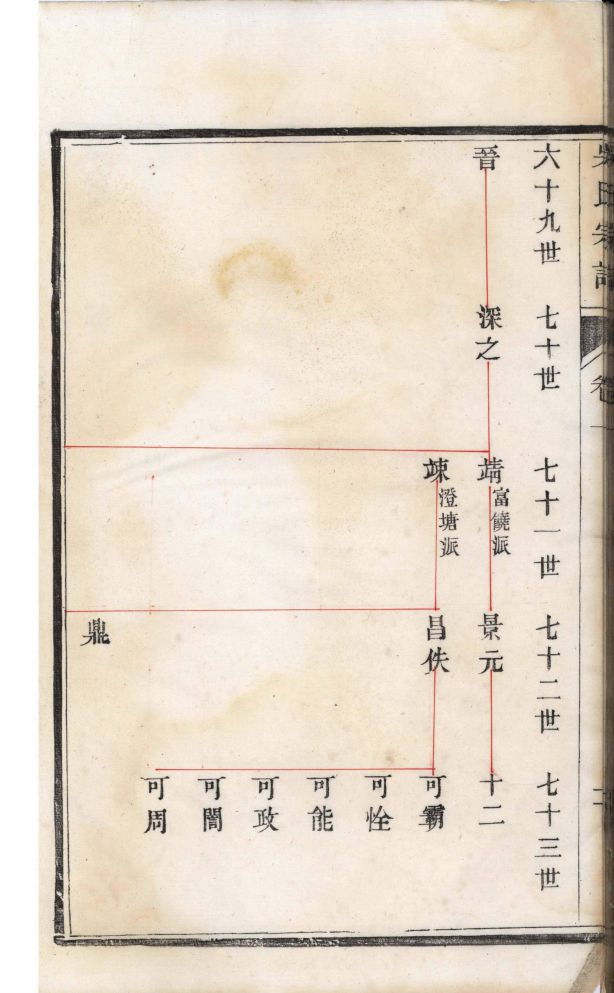 吳氏宗譜 卷一
六十九世 七十世 七十一世 七十二世 七十三世
晉 深之 靖 富饒派 景元 十二
竦 澄塘派 昌佚 可霸
可恮
可能
可政
可誾
可周
鼎